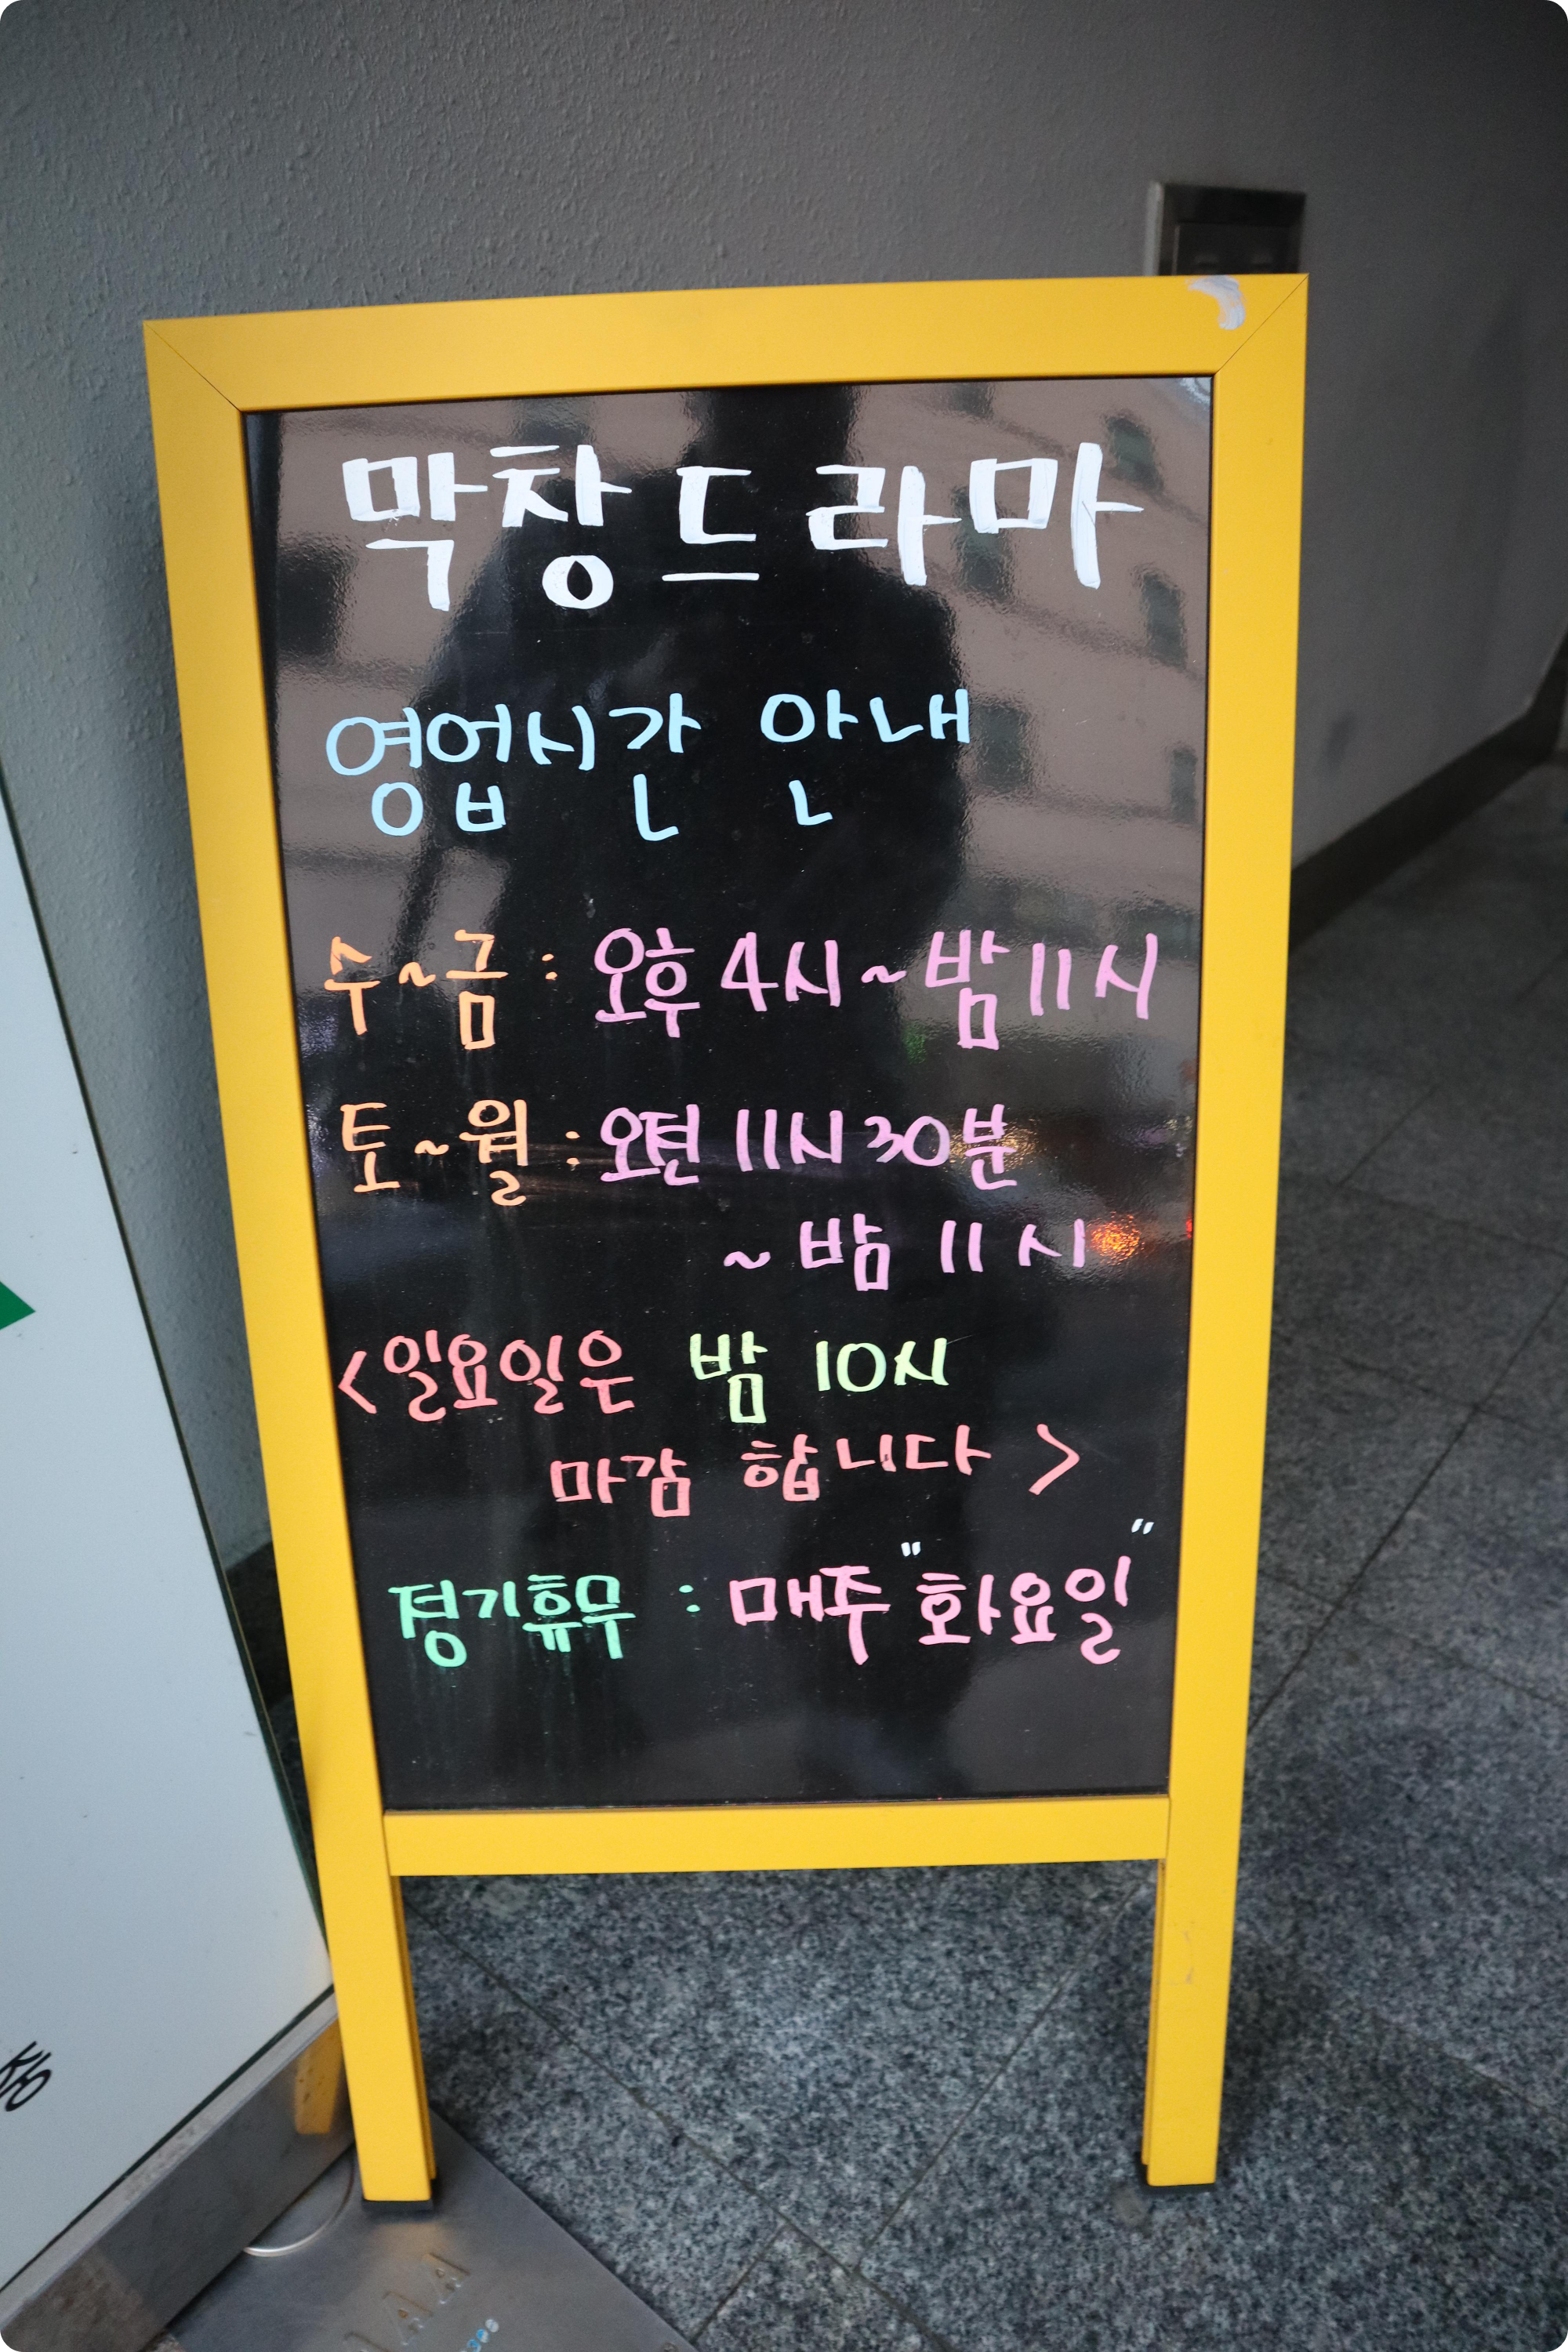 막창드라마
영업시간 안내
수~금 : 오후 4시~밤 11시
토~월 : 오전 11시 30분
~ 밤 11시
<일요일은 밤 10시
마감 합니다>
정기휴무 : 매주 "화요일"